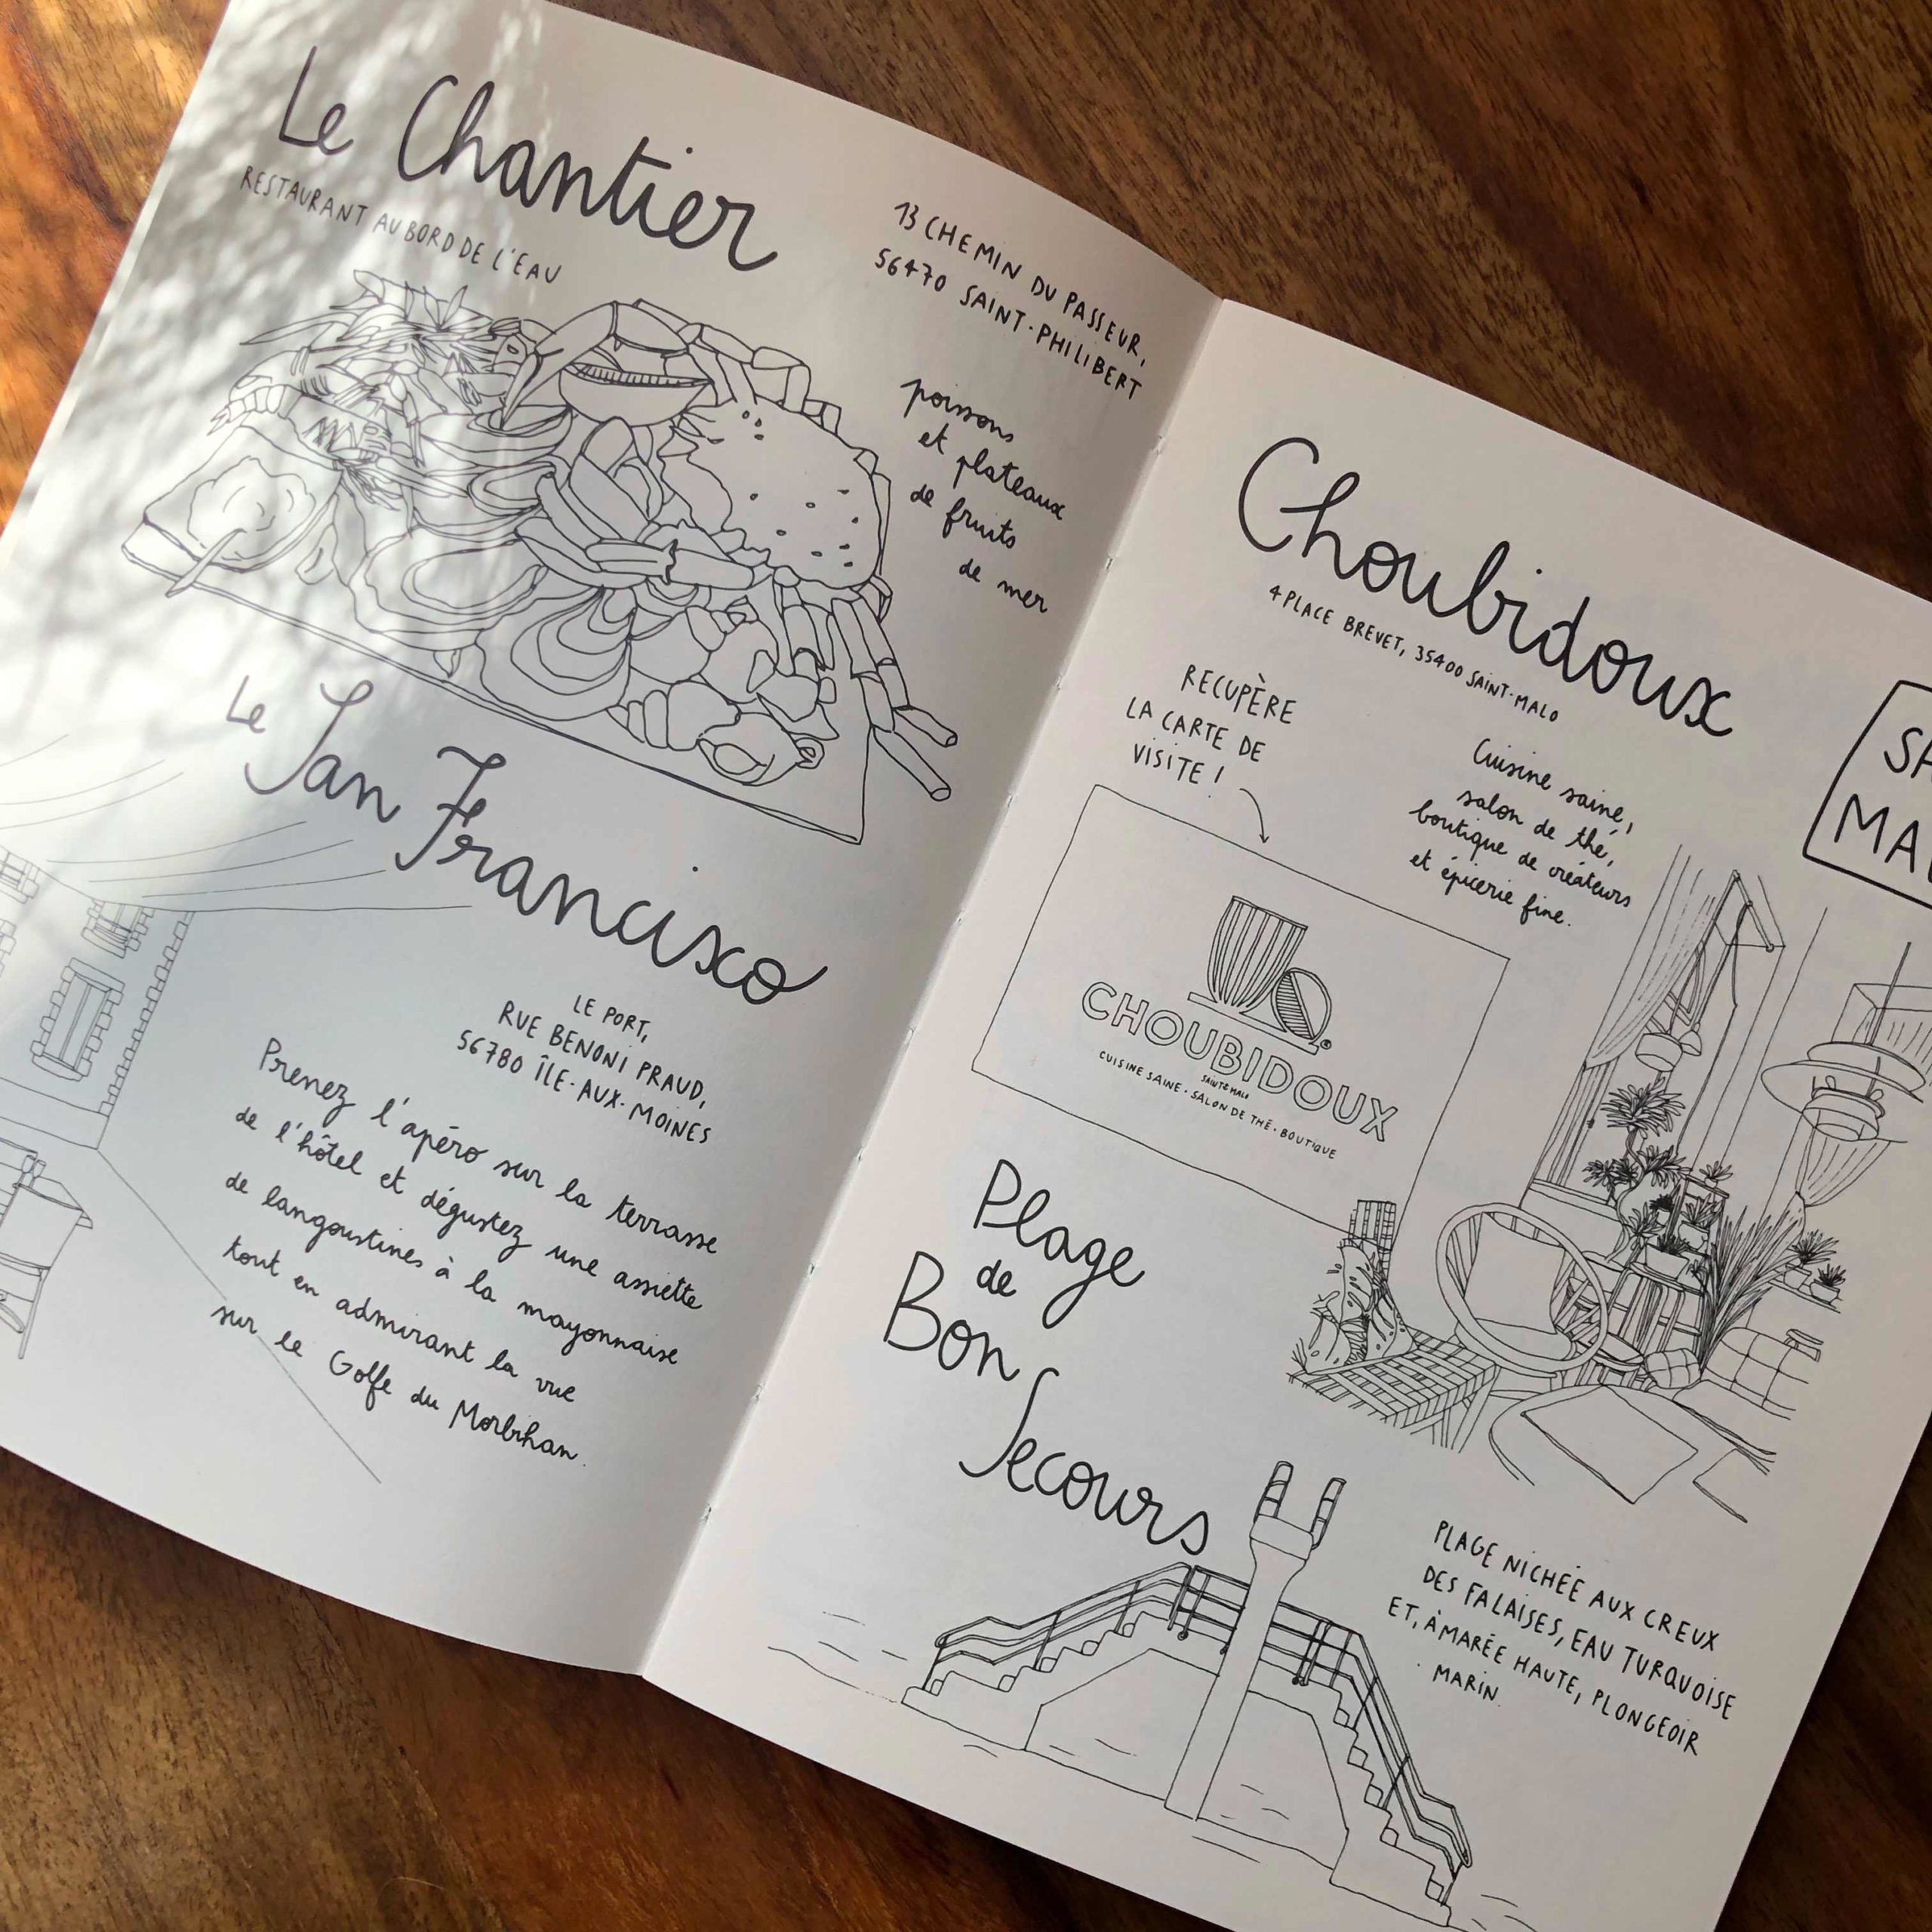 Le Chantier
RESTAURANT AU BORD DE L'EAU
13 CHEMIN DU PASSEUR,
56470 SAINT-PHILIBERT
poissons
et plateaux
de fruits
de mer
Le San Francisco
LE PORT,
RUE BENONI PRAUD,
56780 ÎLE-AUX-MOINES
Prenez l'apéro sur la terrasse
de l'hôtel et dégustez une assiette
de langoustines à la mayonnaise
tout en admirant la vue
sur le Golfe du Morbihan.
Choubidoux
4 PLACE BREVET, 35400 SAINT-MALO
RECUPÈRE
LA CARTE DE
VISITE !
Cuisine saine,
salon de thé,
boutique de créateurs
et épicerie fine.
CHOUBIDOUX
SAINT MALO
CUISINE SAINE . SALON DE THÉ . BOUTIQUE
Plage
de
Bon
Secours
PLAGE NICHÉE AUX CREUX
DES FALAISES, EAU TURQUOISE
ET, À MARÉE HAUTE, PLONGEOIR
MARIN.